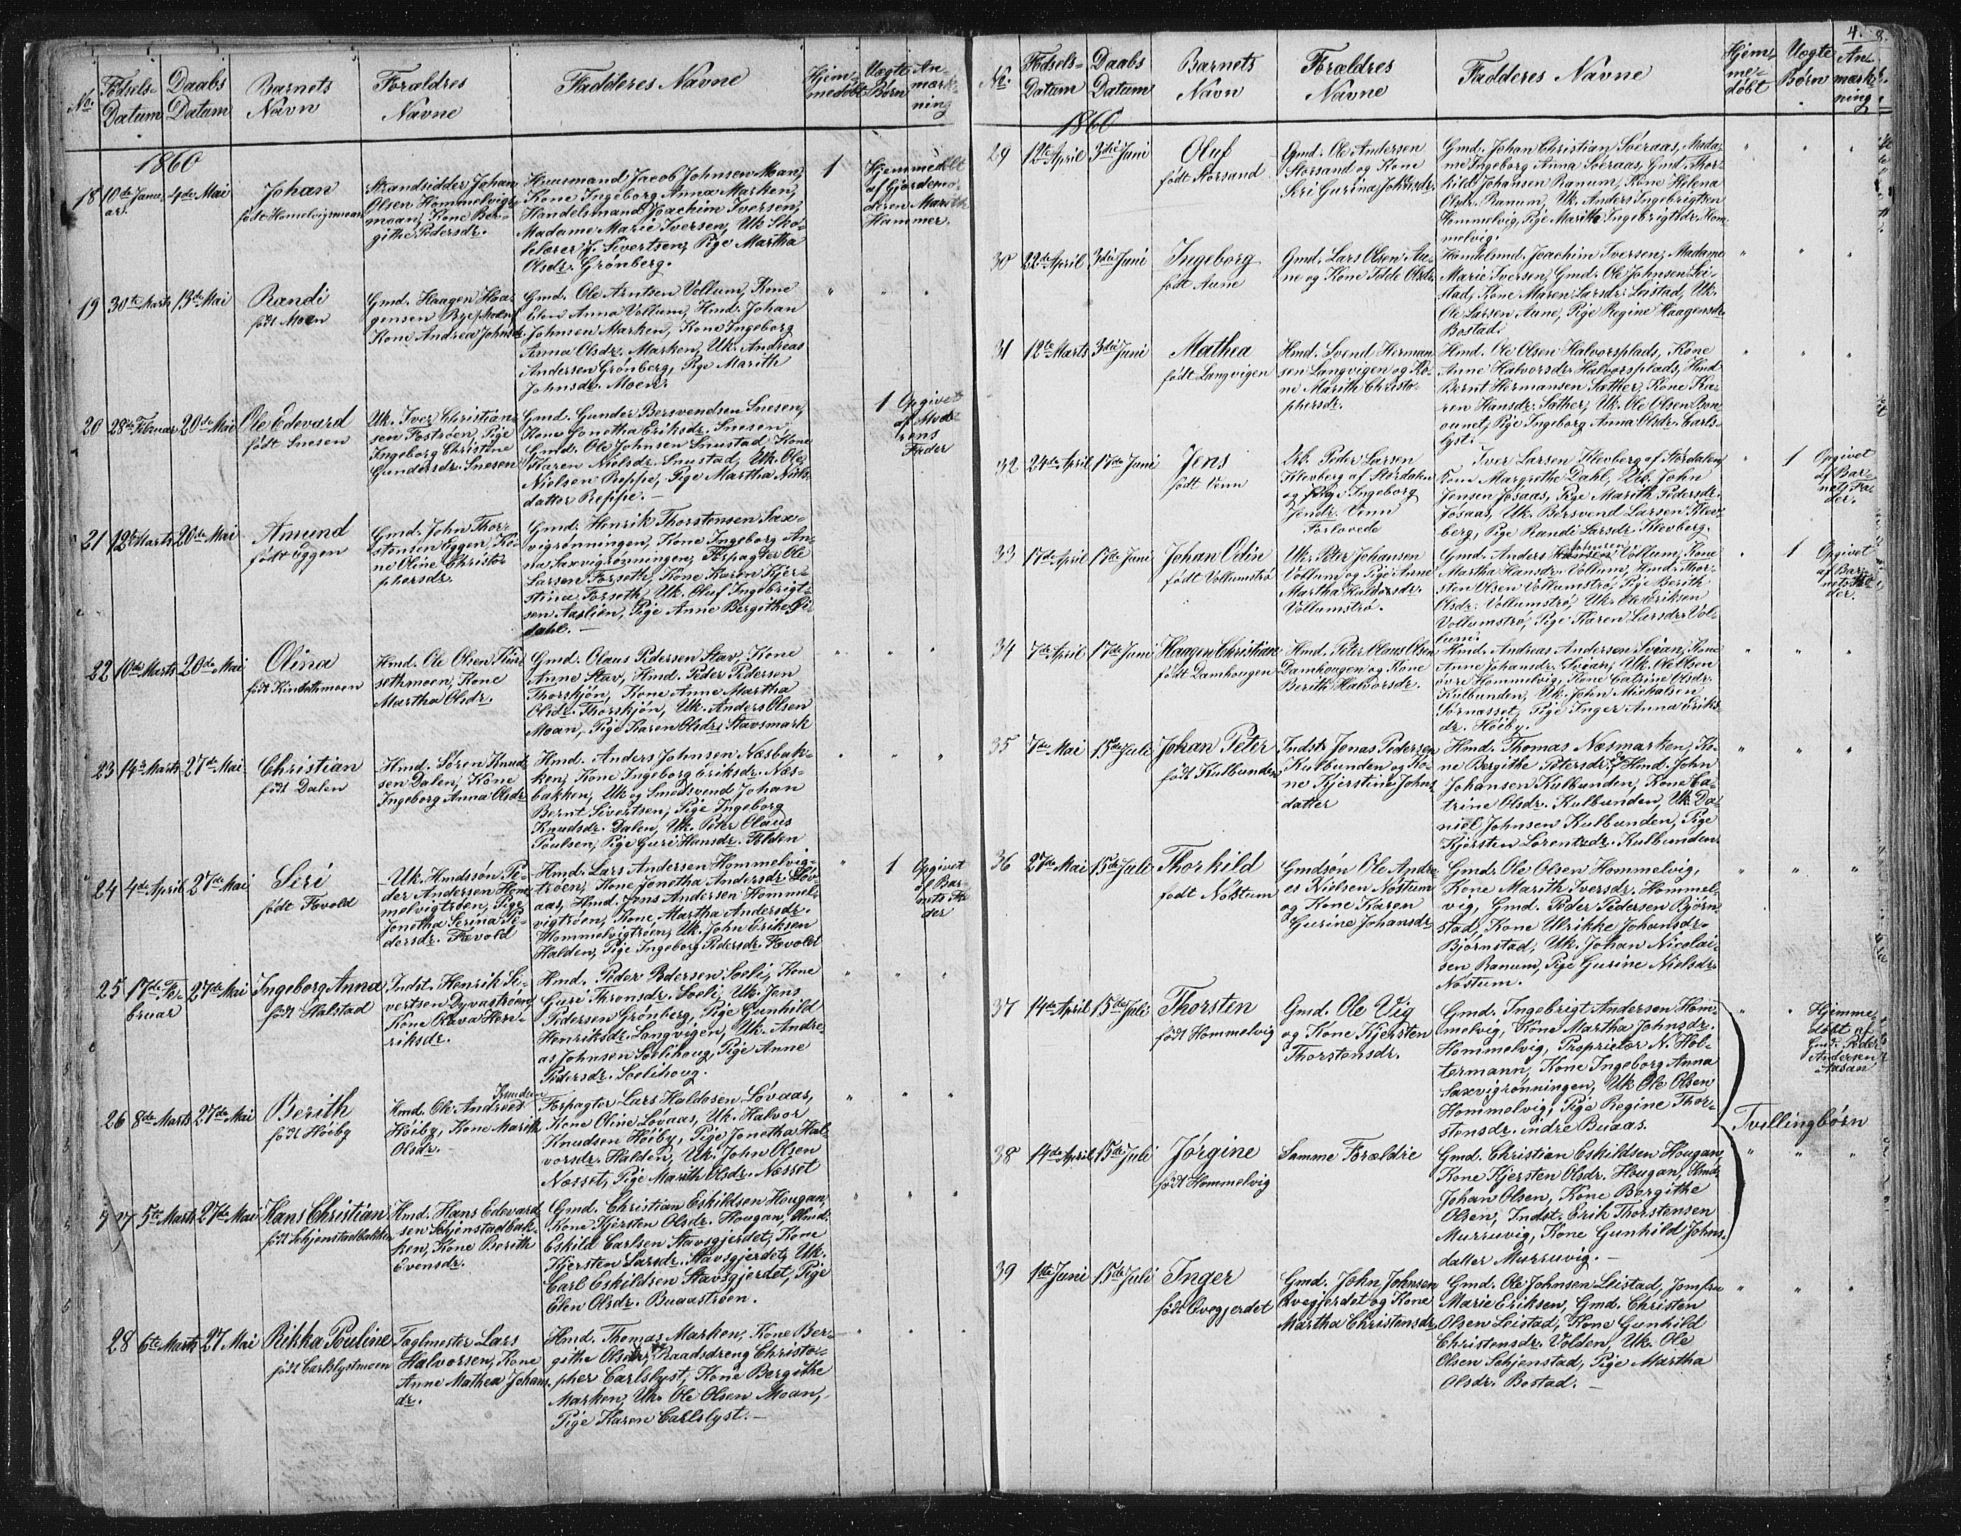 No.
Fødsels-
Datum
Daabs
Datum
Barnets
Navn
Forældres
Navne
Faddernes Navne
Hjem-
medøbt
Uægte
Børn
An-
mærk-
ning
1860
18
10de Janu-
ar
4de Mai
Johan
født Homelvigsmoan
Strandsidder Johan
Olsen Hommelvigs-
moan, Kone Ber-
githe Pedersdr.
Huusmand Jacob Johnsen Moan,
Kone Ingeborg Anna Marken,
Handelsmand Joachim Iversen,
Madame Marie Iversen, Uk. Sko-
lelærer J. Sivertsen, Pige Martha
Olsdr. Grønberg.
1
Hjemmedøbt
af Gjordemo-
deren Marith
Hammer.
19
30te Marts
13de Mai
Randi
født Moen
Gmd. Haagen Haa-
gensen Bye Moen
Kone Andrea Johnsdr.
Gmd. Ole Arntsen Vollum, Kone
Elen Anna Vollum, Hmd. Johan
Johnsen Marken, Kone Ingeborg
Anna Olsdr. Marken, Uk. Andreas
Andersen Grønberg, Pige Marith
Johnsdr. Moen.
20
28de Februar
20de Mai
Ole Edevard
født Snesen
Uk. Iver Christian-
sen Fostrøen, Pige
Ingeborg Christine
Gundersdr. Snesen
Gmd. Gunder Bersvendsen Snesen,
Kone Jonetha Eriksdr. Snesen,
Gmd. Ole Johnsen Snustad, Kone
Karen Nielsdr. Snustad, Uk. Ole
Nielsen Reppe, Pige Martha Niels-
datter Reppe. —
1
Opgivet
af Mod-
rens
Fader
21
12te Marts
20de Mai
Amund
født Eggen
Gmd. John Thor-
stensen Eggen, Ko-
ne Oline Christo-
phersdr.
Gmd. Henrik Thorstensen Sax-
vigrønningen, Kone Ingeborg An-
na Saxvigrønningen, Forpagter Ole
Larsen Forseth, Kone Karen Kjer-
stina Forseth, Uk. Oluf Ingebrigt-
sen Aaslien, Pige Anne Bergithe
dahl. —
22
10de Marts
20de Mai
Olina
født Kinsethmoen
Hmd. Ole Olsen Kin-
sethmoen, Kone
Martha Olsdr.
Gmd. Olaus Pedersen Stav, Kone
Anne Stav, Hmd. Peder Pedersen
Thorskjøn, Kone Anne Martha
Olsdr. Thorskjøn, Uk. Anders Olsen
Moan, Pige Karen Olsdr. Stavsmark
23
14de Marts
27de Mai
Christian
født Dalen
Hmd. Søren Knud-
sen Dalen, Kone
Ingeborg Anna Olsdr.
Hmd. Anders Johnsen Næsbak-
ken, Kone Ingeborg Eriksdr. Næs-
bakken, Uk og Smedsvend Johan
Bernt Sivertsen, Pige Ingeborg
Knudsdr. Dalen, Uk. Peter Olaus
Poulsen, Pige Guri Hansdr. Halden
24
4de April
27de Mai
Siri
født Fævold
Uk. Hmdsøn Pe-
der Andersen Hom-
melvigtrøen, Pige
Jonetha Serina Pe-
dersdr. Fævold
Hmd. Lars Andersen Hommelvig-
trøen, Kone Jonetha Andersdr. Løv-
aas, Hmd. Jens Andersen Hommel-
vigtrøen, Kone Martha Andersdr.
Hommelvigtrøen, Uk. John Eriksen
Halden, Pige Ingeborg Pedersdr. Fævold
1
Opgivet
af Bar-
nets Fa-
der
25
17de Fe-
bruar
27de Mai
Ingeborg Anna
født Halstad
Indst. Henrik Si-
vertsen Dyvastrøen
Kone Olava Hen-
riksdr.
Hmd. Peder Pedersen Soeli, Kone
Guri Thronsdr. Soeli, Uk. Jens
Pedersen Grønberg, Pige Gunhild
Henriksdr. Langvigen, Uk. Andre-
as Johnsen Soelihoug, Pige Anne
Pedersdr. Soelihoug.
26
8de Marts
27de Mai
Berith
født Høiby
Knudsen
Hmd. Ole Andreas
Høiby, Kone Marith
Olsdr.
Forpagter Lars Haldosen Løvaas,
Kone Oline Løvaas, Uk. Halvor
Knudsen Høiby, Pige Jonetha Hal-
vorsdr. Halden, Uk. John Olsen
Næsset, Pige Marith Olsdr. Næsset
27
5te Marts
27de Mai
Hans Christian
født Schjenstadbakken
Hmd. Hans Edevard-
sen Schjenstadbak-
ken, Kone Berith
Evensdr.
Gmd. Christian Eskildsen Hougan,
Kone Kjersten Olsdr. Hougan, Gmd.
Eskild Carlsen Stavsgjerdet, Kone
Kjersten Larsdr. Stavsgjerdet, Uk.
Carl Eskildsen Stavsgjerdet, Pige
Elen Olsdr. Buaastrøen.
28
6te Marts
27 Mai
Rikka Pouline
født Carlslystmoen
Teglmester Lars
Halvorsen, Kone
Anne Mathea Johans-
dr.
Hmd. Thomas Marken, Kone Ber-
githe Olsdr., Raadsdreng Christo-
pher Carlslyst, Kone Bergithe
Marken, Uk. Ole Olsen Moan,
Pige Karen Carlslyst. —
4.
No.
Fødsels-
Datum
Daabs
Datum
Barnets
Navn
Forældres
Navne
Faddernes Navne
Hjem-
me-
døbt
Uægte
Børn
An-
mærk-
ning
1860
29
12te April
3die Juni
Oluf
født Storsand
Gmd. Ole Andersen
Storsand og Kone
Siri Gurina Johnsdr.
Gmd. Johan Christian Søeraas, Mada-
me Ingeborg Anna Søeraas, Gmd. Thor-
kild Johansen Ranum, Kone Helena
Olsdr. Ranum, Uk. Anders Ingebrigtsen
Hommelvig, Pige Marith Ingebrigtsdr. Hom-
melvig.
30
22de April
3die Juni
Ingeborg
født Aune
Gmd. Lars Olsen Au-
ne og Kone Ildde Olsdr.
Handelsmd. Joachim Iversen, Madame
Marie Iversen, Gmd. Ole Johnsen Lei-
stad, Kone Maren Larsdr. Leistad, Uk.
Ole Larsen Aune, Pige Regine Haagensdr.
Bostad.
31
12te Marts
3die Juni
Mathea
født Langvigen
Hmd. Svend Herman-
sen Langvigen og Ko-
ne Marith Christo-
phersdr.
Hmd. Ole Olsen Halvorsplads, Kone
Anne Halvorsdr. Halvorsplads, Hmd.
Bernt Hermansen Sæther, Kone Ka-
ren Hansdr. Sæther, Uk. Ole Olsen Bon-
aunet, Pige Ingeborg Anna Olsdr. Carls-
lyst. —
32
24de April
17de Juni
Jens
født Venn
Uk. Peder Larsen
Klevberg af Størdalen
og Pige Ingeborg
Jensdr. Vinn
Forlovede
Iver Larsen Klevberg af Størdalen,
Kone Margrethe Dahl, Uk. John
Jensen Jøsaas, Pige Marith Pedersdr.
Jøsaas, Uk. Bersvend Larsen Klev-
berg, Pige Randi Larsdr. Klevberg.
1
Opgivet
af Bar-
nets Fa-
der.
33
17de April
17de Juni
Johan Odin
født Vollumstrø
Uk. Peter Johansen
Vollum og Pige Anne
Martha Haldorsdr.
Vollumstrø.
Gmd. Anders Hansen Vollum, Kone
Martha Hansdr. Vollum, Hmd. Thor-
sten Olsen Vollumstrø, Pige Berith
Olsdr. Vollumstrø, Uk. Ole Eriksen
Vollumstrø, Pige Karen Larsdr. Vol-
lum.
1
Opgivet
af Bar-
nets Fa-
der.
34
7de April
17de Juni
Haagen Christian
født Damhougen
Hmd. Peter Olaus Olsen
Damhougen og Kone
Berith Halvorsdr.
Hmd. Andreas Andersen Svean, Kone
Anne Johansdr. Svean, Uk. Ole Olsen
øvre Hommelvig, Kone Catrine Olsdr.
Kulbunden, Uk. John Michalsen
Sørnæsset, Pige Inger Anna Eriks-
dr. Høiby.
35
7de Mai
15de Juli
Johan Peter
født Kulbunden
Indst. Jonas Pedersen
Kulbunden og Ko-
ne Kjerstine Johns-
datter
Hmd. Thomas Næsmarken, Ko-
ne Bergithe Petersdr., Hmd. John
Johansen Kulbunden, Kone Ca-
trine Olsdr. Kulbunden, Uk. Da-
niel Johnsen Kulbunden, Pige
Kjersten Lorentzdr. Kulbunden
36
27de Mai
15de Juli
Thorkild
født Nøstum
Gmdsøn Ole Andre-
es Nielsen Nøstum
og Kone Karen
Gurine Johansdr.
Gmd. Ole Olsen Hommelvig,
Kone Marith Iversdr. Hommel-
vig, Gmd. Peder Pedersen Bjørn-
stad, Kone Ulrikke Johansdr.
Bjørnstad, Uk. Johan Nicolai-
sen Ranum, Pige Gurine Nielsdr.
Nøstum.
37
14de April
15de Juli
Thorsten
født Hommelvig
Gmd. Ole Vig
og Kone Kjersten
Thorstensdr.
Gmd. Ingebrigt Andersen Hom-
melvig, Kone Martha Johnsdr.
Hommelvig, Proprietær N. Hol-
termann, Kone Ingeborg Anna
Saxvigrønningen, Uk. Ole Olsen
Hommelvig, Pige Regine Thor-
stensdr. indre Buaas.
Hjemme-
døbt af
Gmd. Peder
Andersen
Aasan
Tvillingbørn
38
14de April
15de Juli
Jørgine
født Hommelvig
Samme Forældre
Gmd. Christian Eskildsen Hougan,
Kone Kjersten Olsdr. Hougan, Hmd.
Johan Olsen, Kone Bergithe
Olsen, Indst. Erik Thorstensen
Murruvig, Kone Gunhild Johns-
datter Murruvig. —
39
1te Juni
15de Juli
Inger
født Qvegjerdet
Gmd. John Johnsen
Qvegjerdet og Kone
Martha Christensdr.
Gmd. Ole Johnsen Leistad, Jomfru
Marie Eriksen, Gmd. Christen
Olsen Leistad, Kone Gunhild
Christensdr. Volden, Uk. Ole
Olsen Schjenstad, Pige Martha
Olsdr. Bostad. —